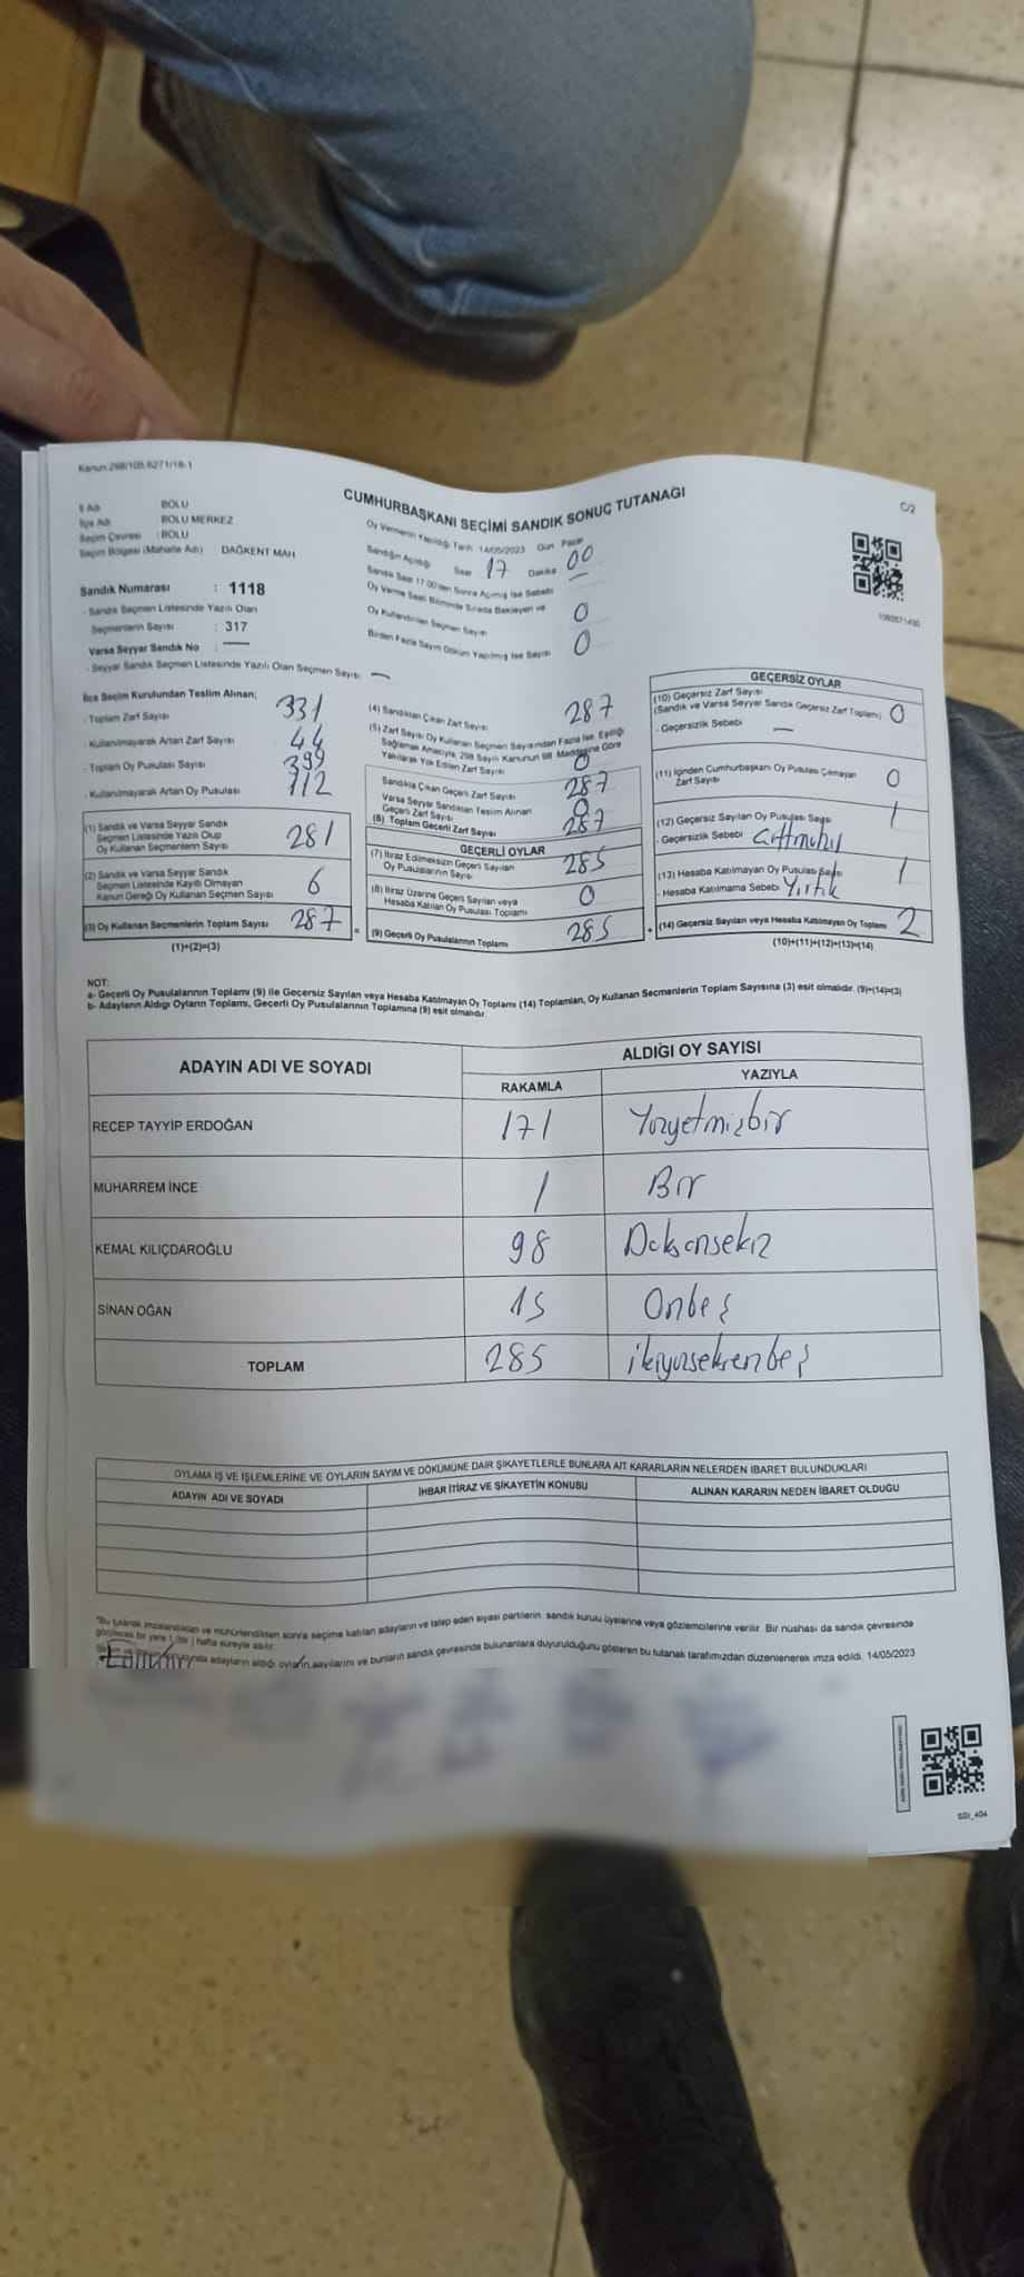 Kanun:298/105,6271/18-1
CUMHURBAŞKANI SEÇİMİ SANDIK SONUÇ TUTANAĞI
C/2
İl Adı BOLU
İlçe Adı BOLU MERKEZ
Seçim Çevresi : BOLU
Seçim Bölgesi (Mahalle Adı) : DAĞKENT MAH.
Sandık Numarası : 1118
- Sandık Seçmen Listesinde Yazılı Olan
Seçmenlerin Sayısı : 317
Varsa Seyyar Sandık No : —
- Seyyar Sandık Seçmen Listesinde Yazılı Olan Seçmen Sayısı —
Oy Vermenin Yapıldığı Tarih 14/05/2023 Gün Pazar
Sandığın Açıldığı Saat 17 Dakika 00
Sandık Saat 17.00'den Sonra Açılmış İse Sebebi —
Oy Verme Saati Bitiminde Sırada Bekleyen ve
Oy Kullandırılan Seçmen Sayısı 0
Birden Fazla Sayım Döküm Yapılmış İse Sayısı 0
İlçe Seçim Kurulundan Teslim Alınan;
- Toplam Zarf Sayısı 331
- Kullanılmayarak Artan Zarf Sayısı 44
- Toplam Oy Pusulası Sayısı 399
- Kullanılmayarak Artan Oy Pusulası 112
(1) Sandık ve Varsa Seyyar Sandık
Seçmen Listesinde Yazılı Olup
Oy Kullanan Seçmenlerin Sayısı 281
(2) Sandık ve Varsa Seyyar Sandık
Seçmen Listesinde Kayıtlı Olmayan
Kanun Gereği Oy Kullanan Seçmen Sayısı 6
(3) Oy Kullanan Seçmenlerin Toplam Sayısı 287
(1)+(2)=(3)
(4) Sandıktan Çıkan Zarf Sayısı 287
(5) Zarf Sayısı Oy Kullanan Seçmen Sayısından Fazla İse, Eşitliği
Sağlamak Amacıyla, 298 Sayılı Kanunun 98. Maddesine Göre
Yakılarak Yok Edilen Zarf Sayısı 0
Sandıkta Çıkan Geçerli Zarf Sayısı 287
Varsa Seyyar Sandıktan Teslim Alınan
Geçerli Zarf Sayısı 0
(6) Toplam Geçerli Zarf Sayısı 287
GEÇERLİ OYLAR
(7) İtiraz Edilmeksizin Geçerli Sayılan
Oy Pusulalarının Sayısı 285
(8) İtiraz Üzerine Geçerli Sayılan veya
Hesaba Katılan Oy Pusulası Toplamı 0
(9) Geçerli Oy Pusulalarının Toplamı 285
GEÇERSİZ OYLAR
(10) Geçersiz Zarf Sayısı
(Sandık ve Varsa Seyyar Sandık Geçersiz Zarf Toplamı) 0
- Geçersizlik Sebebi —
(11) İçinden Cumhurbaşkanı Oy Pusulası Çıkmayan
Zarf Sayısı 0
(12) Geçersiz Sayılan Oy Pusulası Sayısı 1
- Geçersizlik Sebebi
(13) Hesaba Katılmayan Oy Pusulası Sayısı 1
- Hesaba Katılmama Sebebi Yırtık
(14) Geçersiz Sayılan veya Hesaba Katılmayan Oy Toplamı 2
(10)+(11)+(12)+(13)=(14)
NOT:
a- Geçerli Oy Pusulalarının Toplamı (9) ile Geçersiz Sayılan veya Hesaba Katılmayan Oy Toplamı (14) Toplamları, Oy Kullanan Seçmenlerin Toplam Sayısına (3) eşit olmalıdır. (9)+(14)=(3)
b- Adayların Aldığı Oyların Toplamı, Geçerli Oy Pusulalarının Toplamına (9) eşit olmalıdır.
ADAYIN ADI VE SOYADI ALDIĞI OY SAYISI
RAKAMLA YAZIYLA
RECEP TAYYİP ERDOĞAN 171 Yüzyetmişbir
MUHARREM İNCE 1 Bir
KEMAL KILIÇDAROĞLU 98 Doksansekiz
SİNAN OĞAN 15 Onbeş
TOPLAM 285 ikiyüzseksenbeş
OYLAMA İŞ VE İŞLEMLERİNE VE OYLARIN SAYIM VE DÖKÜMÜNE DAİR ŞİKAYETLERLE BUNLARA AİT KARARLARIN NELERDEN İBARET BULUNDUKLARI
ADAYIN ADI VE SOYADI İHBAR İTİRAZ VE ŞİKAYETİN KONUSU ALINAN KARARIN NEDEN İBARET OLDUĞU
"Bu tutanak imzalandıktan ve mühürlendikten sonra seçime katılan adayların ve talep eden siyasi partilerin sandık kurulu üyelerine veya gözlemcilerine verilir. Bir nüshası da sandık çevresinde
görülecek bir yere 1 (bir) hafta süreyle asılır.
adayların aldığı oyların sayılarını ve bunların sandık çevresinde bulunanlara duyurulduğunu gösteren bu tutanak tarafımızdan düzenlenerek imza edildi. 14/05/2023